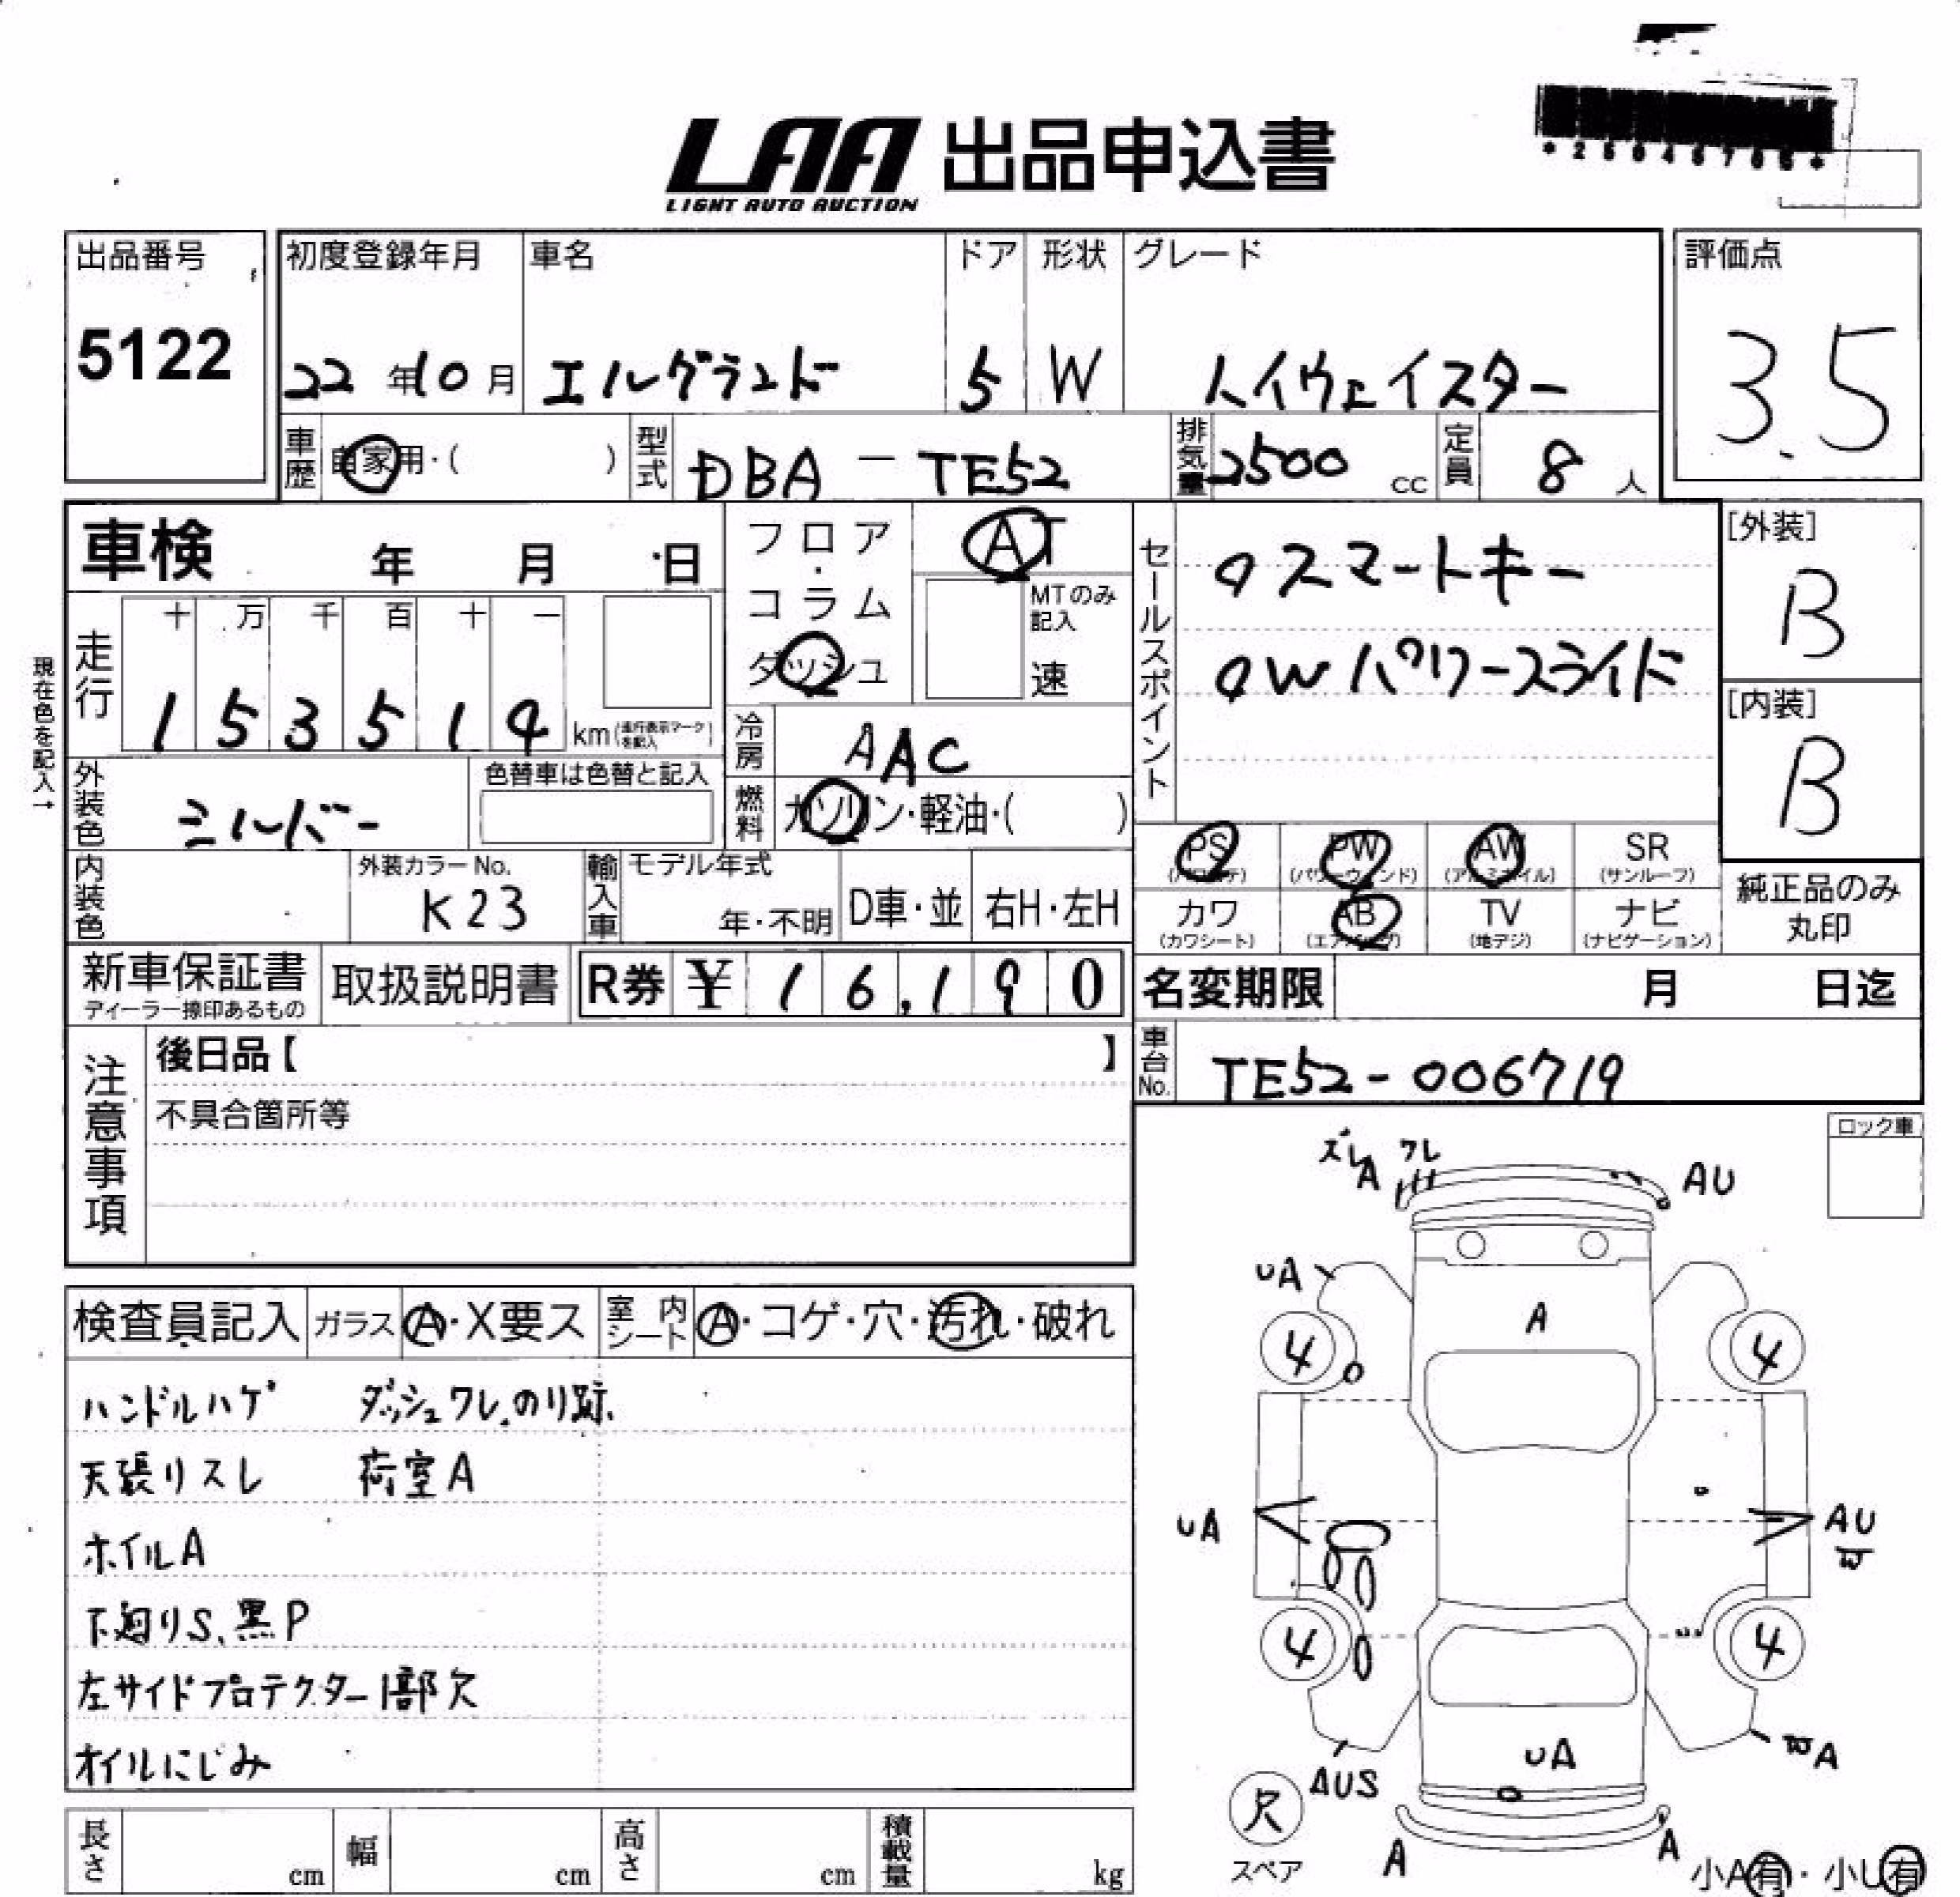 LAA 出品申込書
LIGHT AUTO AUCTION
出品番号
5122
初度登録年月 車名 ドア 形状 グレード
22年10月 エルグランド 5 W ハイウェイスター
評価点
3.5
車歴 自家用・( ) 型式 DBA - TE52 排気量 2500 cc 定員 8 人
車検 年 月 日
フロア・コラム ダッシュ
AT
MTのみ記入
速
セールスポイント
○スマートキー
○Wパワースライド
[外装]
B
[内装]
B
現在色を記入→
走行 十 万 千 百 十 一
153514 km (走行表示マークを記入)
冷房 AAC
外装色 シルバー 色替車は色替と記入
燃料 ガソリン・軽油・( )
PS (パワステ) PW (パワーウィンド) AW (アルミホイル) SR (サンルーフ)
カワ (カワシート) AB (エアバッグ) TV (地デジ) ナビ (ナビゲーション)
純正品のみ丸印
内装色 外装カラーNo. K23 輸入車 モデル年式 年・不明 D車・並 右H・左H
新車保証書 ディーラー捺印あるもの 取扱説明書 R券 ¥16,190
名変期限 月 日迄
車台No. TE52-006719
注意事項
後日品【 】
不具合箇所等
ロック車
検査員記入 ガラス A・X要ス 室内シート A・コゲ・穴・汚れ・破れ
ハンドルハゲ ダッシュワレ、のり跡、
天張リスレ 荷室A
ホイルA
下廻りS、黒P
左サイドプロテクター1部欠
オイルにじみ
長さ cm 幅 cm 高さ cm 積載量 kg
ズレ ワレ
A
AU
UA
A
4 4
UA
AU
W
4 4
UA
AUS
WA
欠
スペア
A A
小A有・小U有